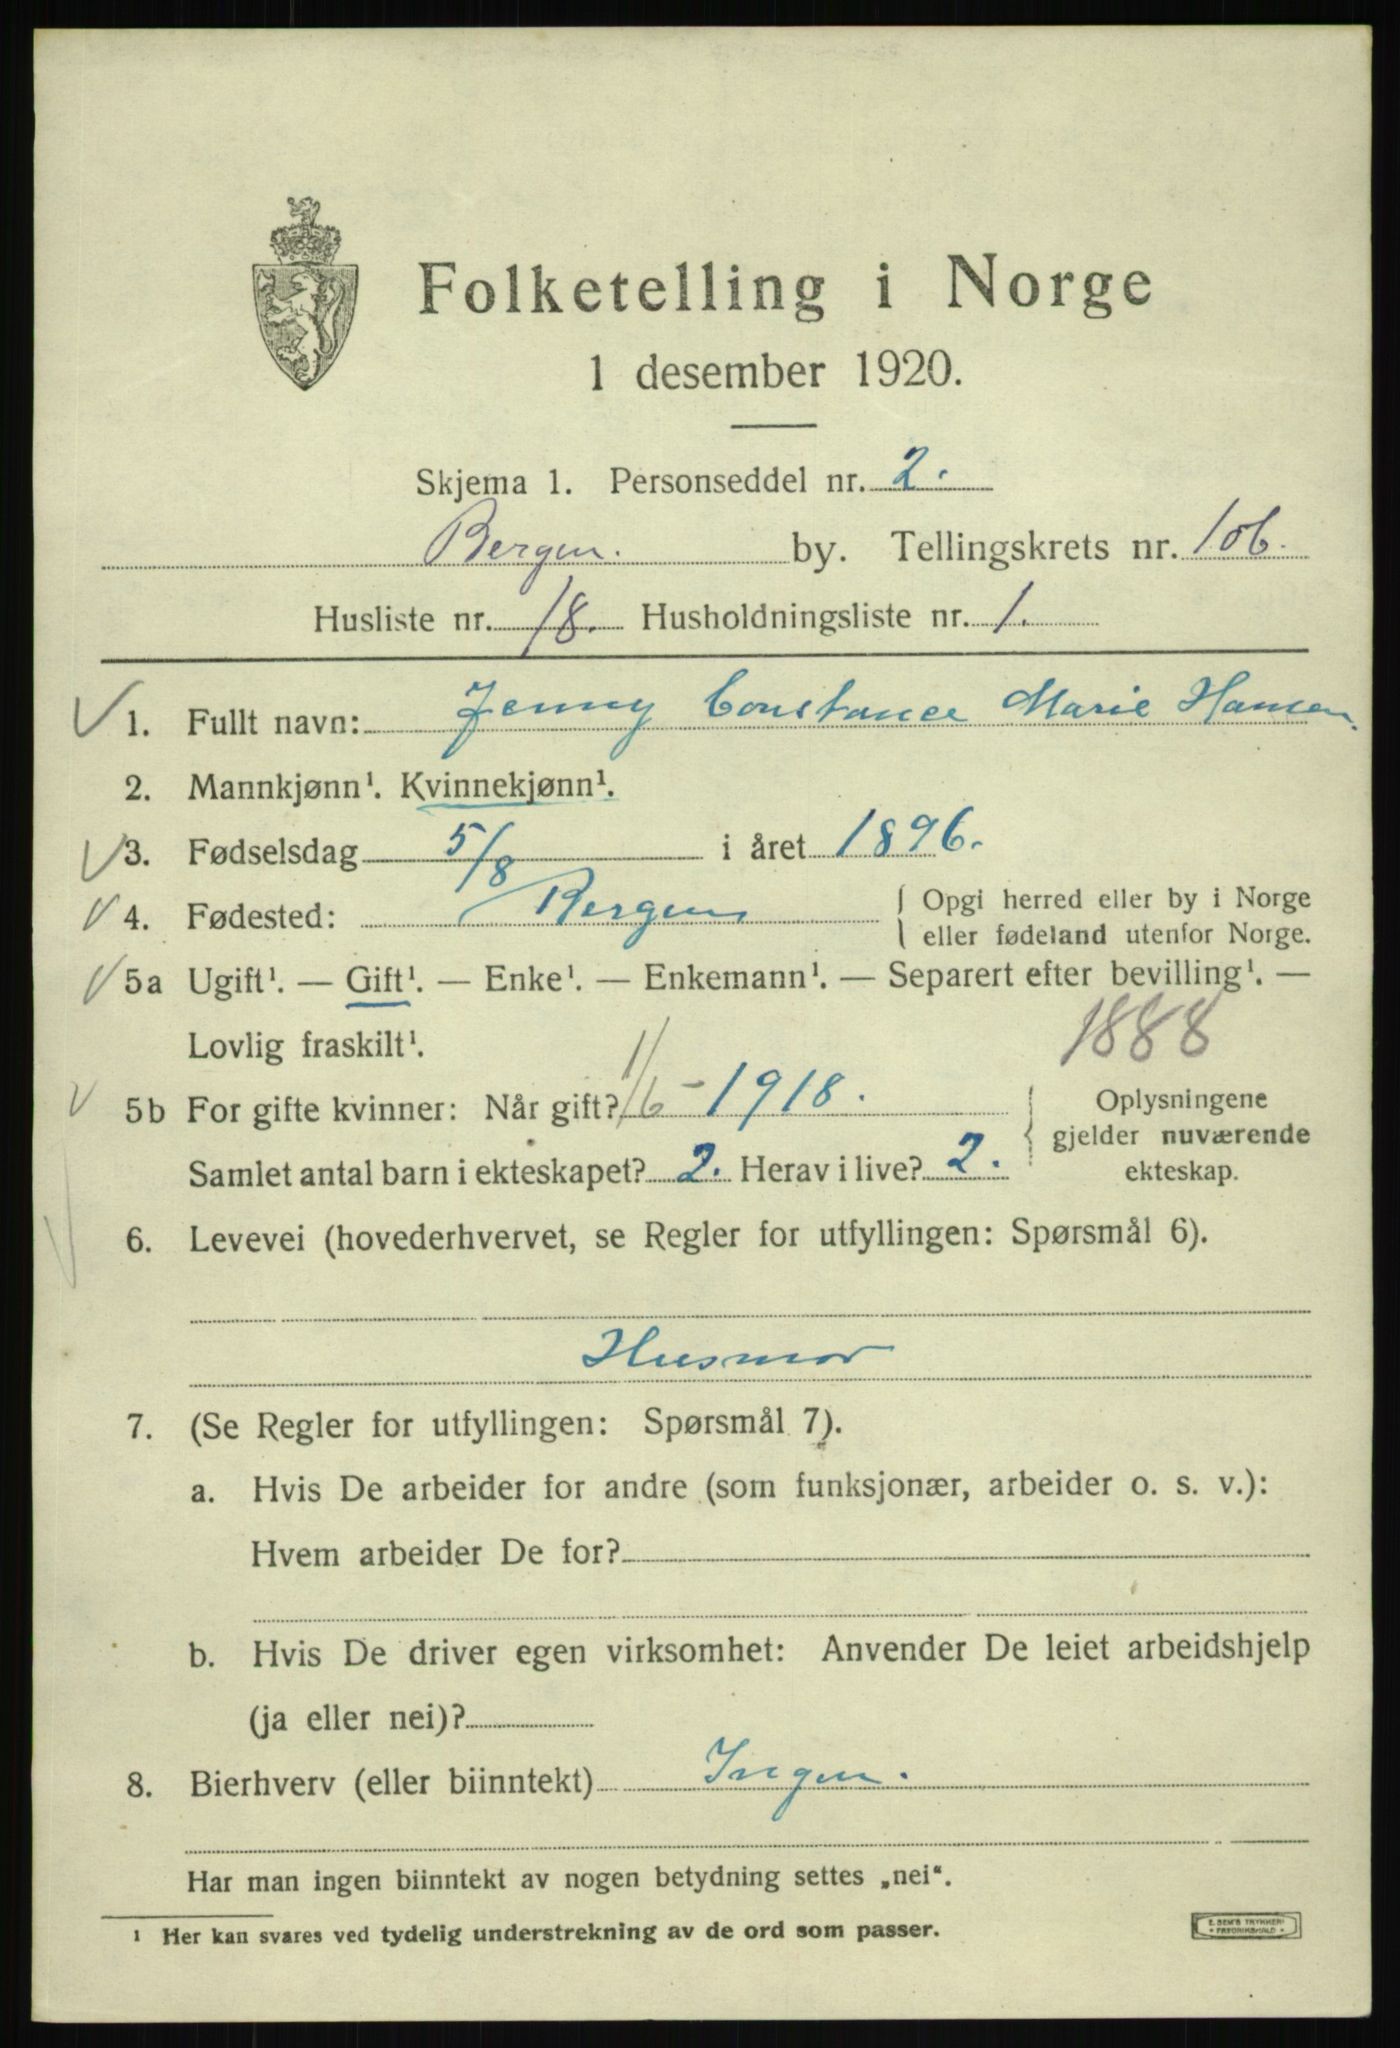 Folketelling i Norge
1 desember 1920.
Skjema 1. Personseddel nr. 2.
Bergen. by. Tellingskrets nr. 106.
Husliste nr. 18. Husholdningsliste nr. 1.
1. Fullt navn: Jenny Constance Marie Hansen.
2. Mannkjønn¹. Kvinnekjønn¹.
3. Fødselsdag 5/8 i året 1896.
4. Fødested: Bergen { Opgi herred eller by i Norge
eller fødeland utenfor Norge.
5a Ugift¹. — Gift¹. — Enke¹. — Enkemann¹. — Separert efter bevilling¹. —
Lovlig fraskilt¹. 1888
5b For gifte kvinner: Når gift? 1/6 - 1918. { Oplysningene
gjelder nuværende
Samlet antal barn i ekteskapet? 2. Herav i live? 2. ekteskap.
6. Levevei (hovederhvervet, se Regler for utfyllingen: Spørsmål 6).
Husmor
7. (Se Regler for utfyllingen: Spørsmål 7).
a. Hvis De arbeider for andre (som funksjonær, arbeider o. s. v.):
Hvem arbeider De for?
b. Hvis De driver egen virksomhet: Anvender De leiet arbeidshjelp
(ja eller nei)?
8. Bierhverv (eller biinntekt) Ingen.
Har man ingen biinntekt av nogen betydning settes „nei“.
¹ Her kan svares ved tydelig understrekning av de ord som passer.
E. SEM'S TRYKKERI
FREDRIKSHALD